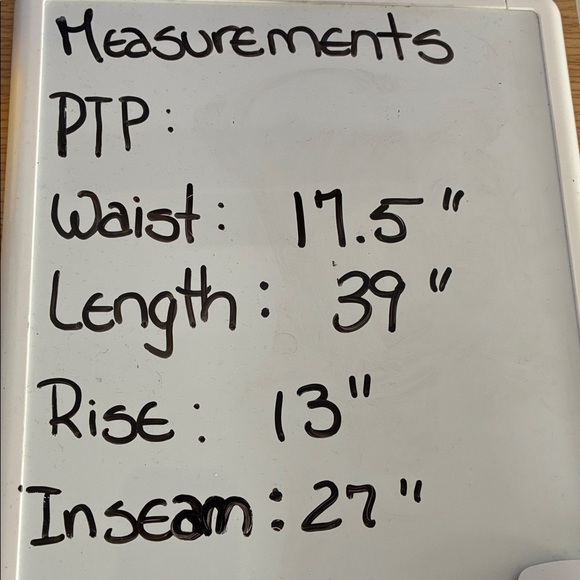 Measurements
PTP:
Waist: 17.5"
Length: 39"
Rise: 13"
Inseam: 27"